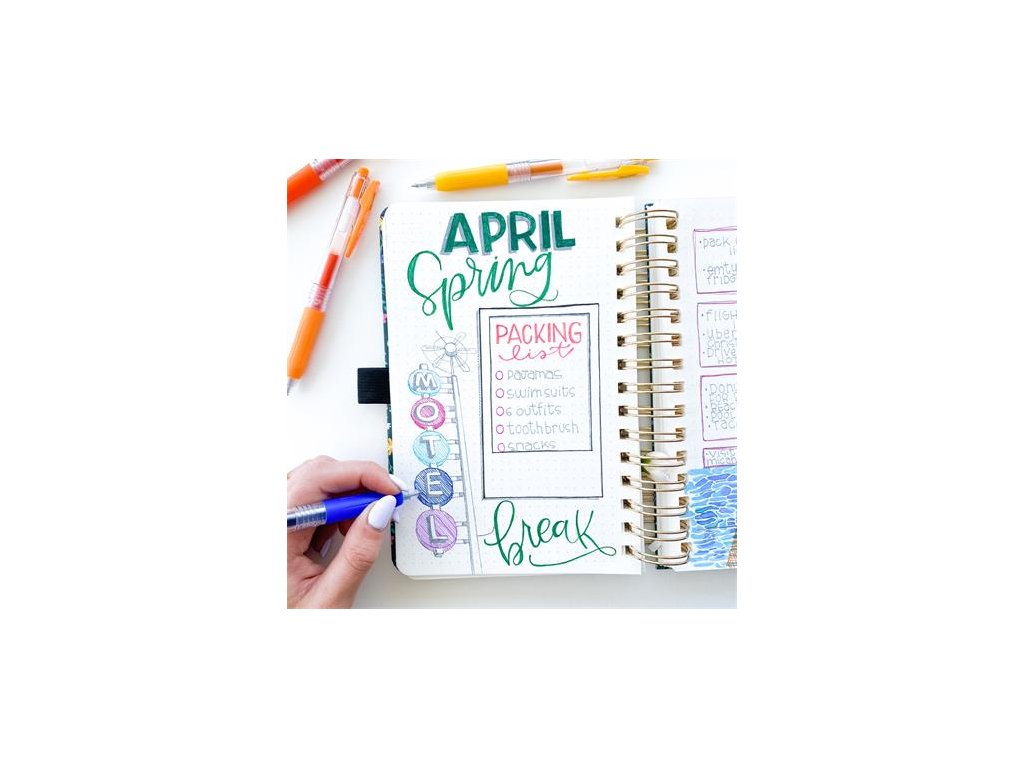 APRIL
Spring
PACKING
list
pajamas
swimsuits
6 outfits
toothbrush
snacks
MOTEL
break
• pack
• emty
frido
• fligh
• Uber
• Drive
• Taco
• visit